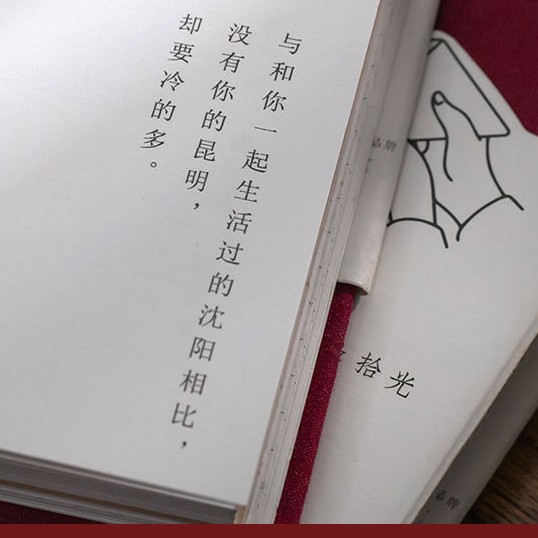 与和你一起生活过的沈阳相比，
没有你的昆明，
却要冷的多。
品牌
拾光
品牌